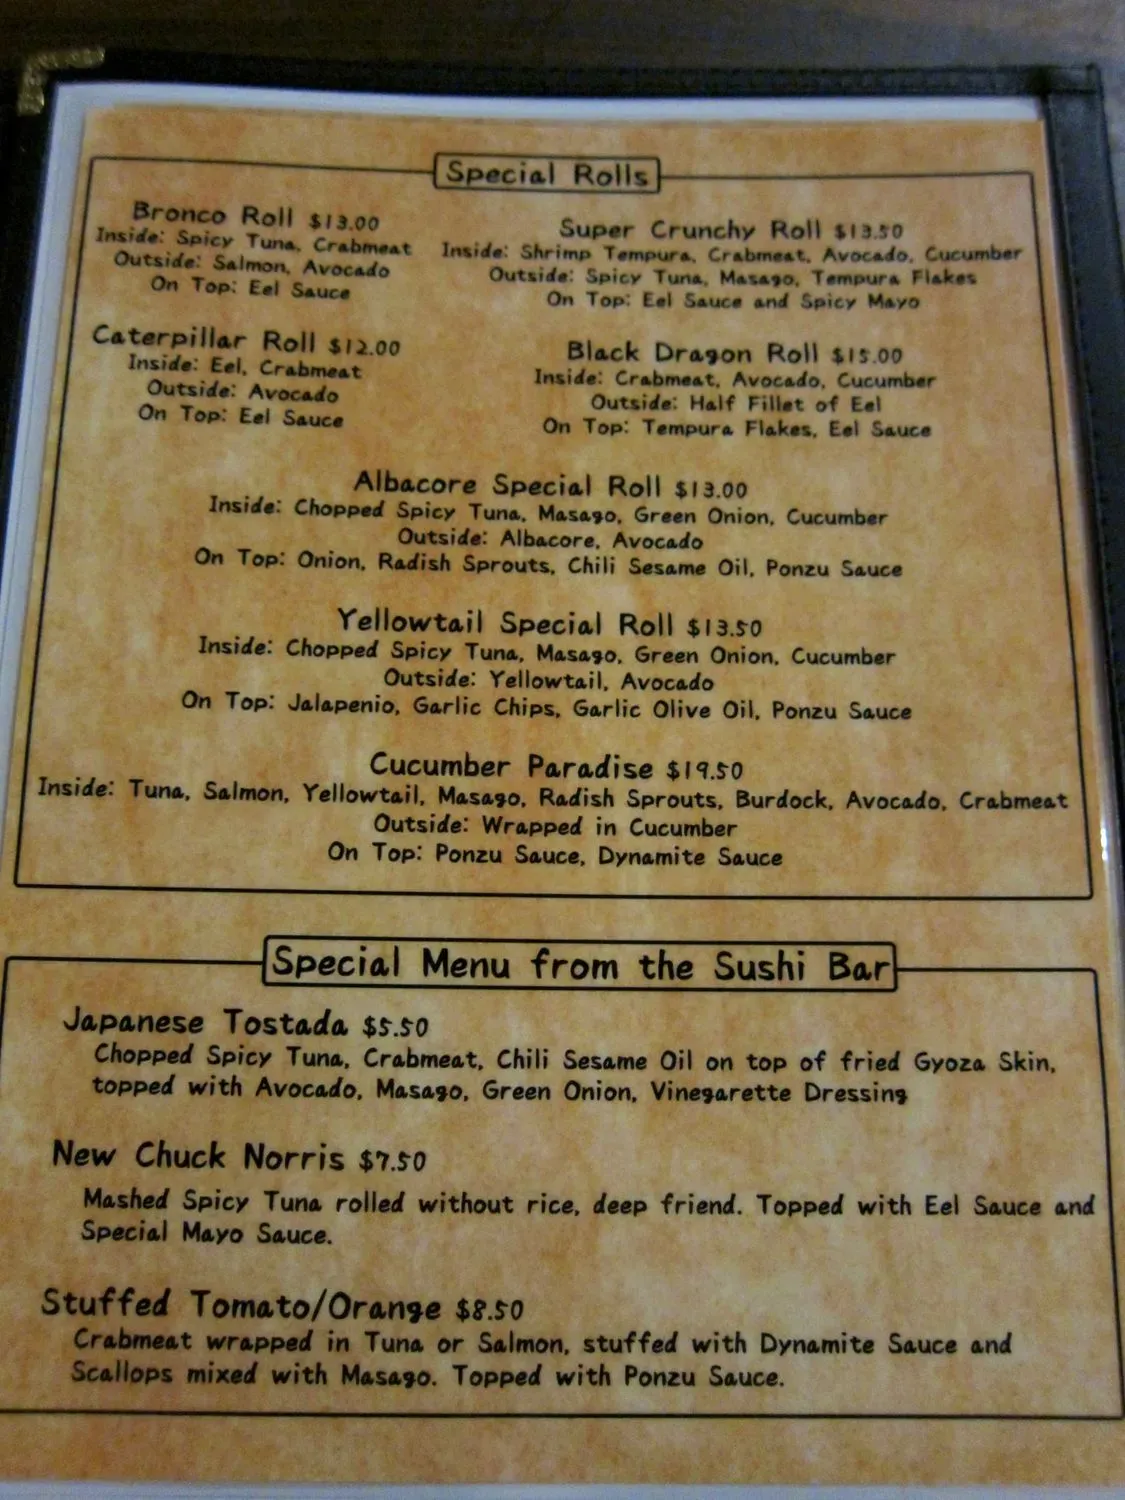 Special Rolls
Bronco Roll $13.00
Inside: Spicy Tuna, Crabmeat
Outside: Salmon, Avocado
On Top: Eel Sauce
Super Crunchy Roll $13.50
Inside: Shrimp Tempura, Crabmeat, Avocado, Cucumber
Outside: Spicy Tuna, Masago, Tempura Flakes
On Top: Eel Sauce and Spicy Mayo
Caterpillar Roll $12.00
Inside: Eel, Crabmeat
Outside: Avocado
On Top: Eel Sauce
Black Dragon Roll $15.00
Inside: Crabmeat, Avocado, Cucumber
Outside: Half Fillet of Eel
On Top: Tempura Flakes, Eel Sauce
Albacore Special Roll $13.00
Inside: Chopped Spicy Tuna, Masago, Green Onion, Cucumber
Outside: Albacore, Avocado
On Top: Onion, Radish Sprouts, Chili Sesame Oil, Ponzu Sauce
Yellowtail Special Roll $13.50
Inside: Chopped Spicy Tuna, Masago, Green Onion, Cucumber
Outside: Yellowtail, Avocado
On Top: Jalapenio, Garlic Chips, Garlic Olive Oil, Ponzu Sauce
Cucumber Paradise $19.50
Inside: Tuna, Salmon, Yellowtail, Masago, Radish Sprouts, Burdock, Avocado, Crabmeat
Outside: Wrapped in Cucumber
On Top: Ponzu Sauce, Dynamite Sauce
Special Menu from the Sushi Bar
Japanese Tostada $5.50
Chopped Spicy Tuna, Crabmeat, Chili Sesame Oil on top of fried Gyoza Skin,
topped with Avocado, Masago, Green Onion, Vinegarette Dressing
New Chuck Norris $7.50
Mashed Spicy Tuna rolled without rice, deep friend. Topped with Eel Sauce and
Special Mayo Sauce.
Stuffed Tomato/Orange $8.50
Crabmeat wrapped in Tuna or Salmon, stuffed with Dynamite Sauce and
Scallops mixed with Masago. Topped with Ponzu Sauce.